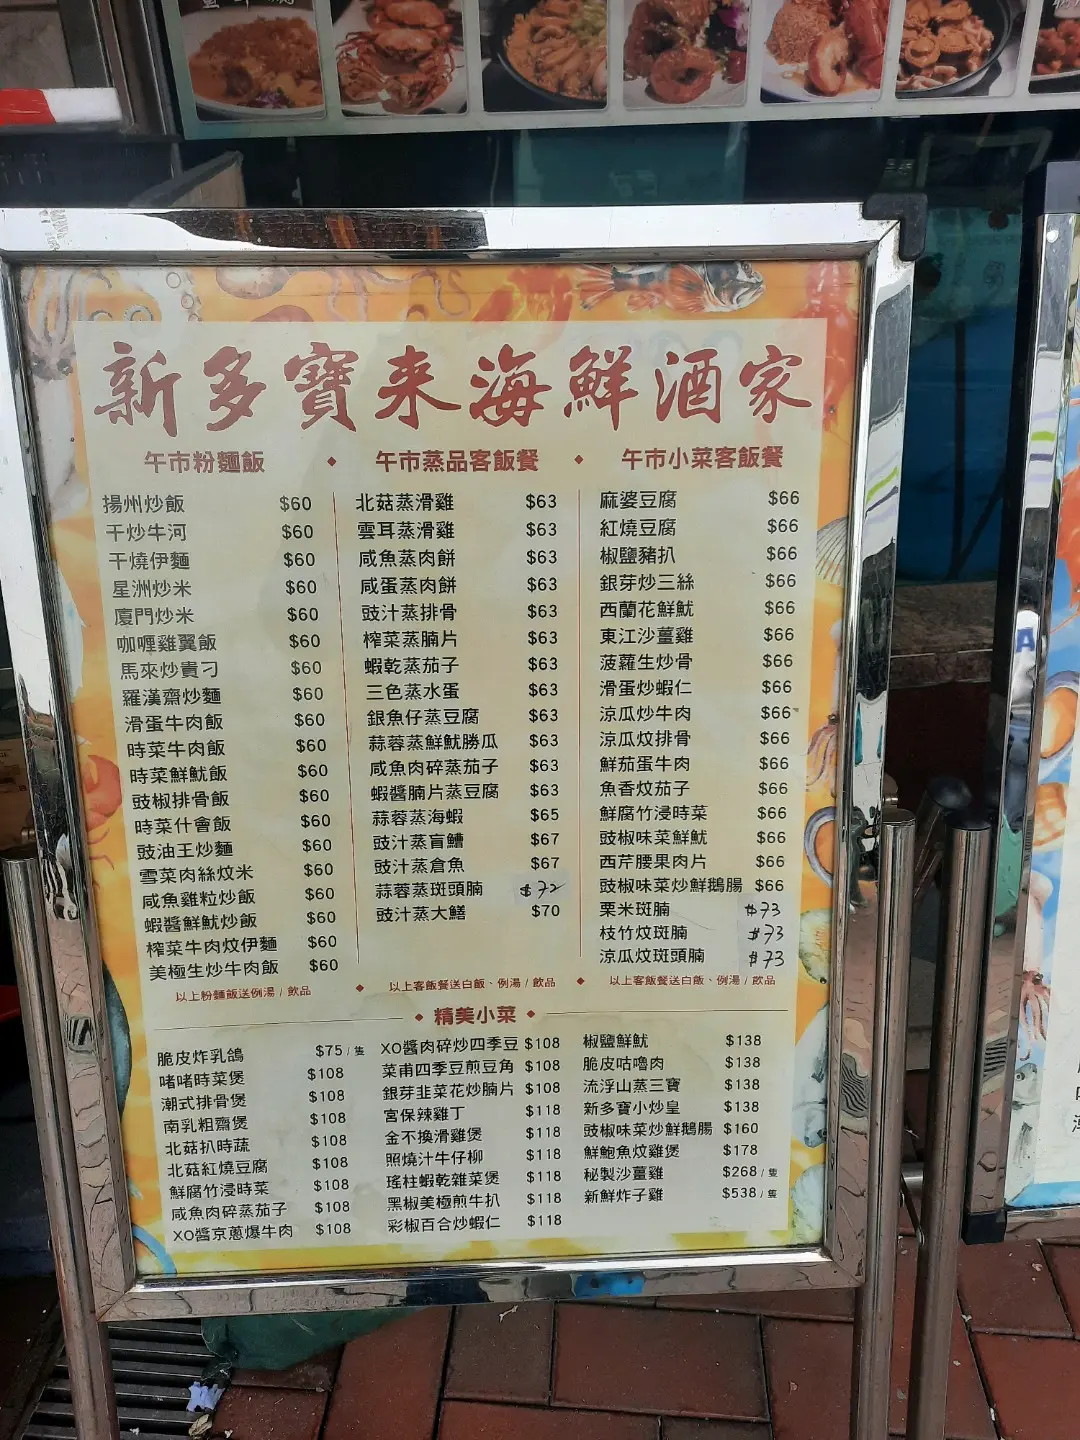 新多寶来海鮮酒家
午市粉麵飯
揚州炒飯 $60
干炒牛河 $60
干燒伊麵 $60
星洲炒米 $60
廈門炒米 $60
咖喱雞翼飯 $60
馬來炒貴刁 $60
羅漢齋炒麵 $60
滑蛋牛肉飯 $60
時菜牛肉飯 $60
時菜鮮魷飯 $60
豉椒排骨飯 $60
時菜什會飯 $60
豉油王炒麵 $60
雪菜肉絲炆米 $60
咸魚雞粒炒飯 $60
蝦醬鮮魷炒飯 $60
榨菜牛肉炆伊麵 $60
美極生炒牛肉飯 $60
以上粉麵飯送例湯 / 飲品
午市蒸品客飯餐
北菇蒸滑雞 $63
雲耳蒸滑雞 $63
咸魚蒸肉餅 $63
咸蛋蒸肉餅 $63
豉汁蒸排骨 $63
榨菜蒸腩片 $63
蝦乾蒸茄子 $63
三色蒸水蛋 $63
銀魚仔蒸豆腐 $63
蒜蓉蒸鮮魷勝瓜 $63
咸魚肉碎蒸茄子 $63
蝦醬腩片蒸豆腐 $63
蒜蓉蒸海蝦 $65
豉汁蒸盲鰽 $67
豉汁蒸倉魚 $67
蒜蓉蒸斑頭腩 $72
豉汁蒸大鱔 $70
以上客飯餐送白飯、例湯 / 飲品
午市小菜客飯餐
麻婆豆腐 $66
紅燒豆腐 $66
椒鹽豬扒 $66
銀芽炒三絲 $66
西蘭花鮮魷 $66
東江沙薑雞 $66
菠蘿生炒骨 $66
滑蛋炒蝦仁 $66
涼瓜炒牛肉 $66
涼瓜炆排骨 $66
鮮茄蛋牛肉 $66
魚香炆茄子 $66
鮮腐竹浸時菜 $66
豉椒味菜鮮魷 $66
西芹腰果肉片 $66
豉椒味菜炒鮮鵝腸 $66
栗米斑腩 $73
枝竹炆斑腩 $73
涼瓜炆斑頭腩 $73
以上客飯餐送白飯、例湯 / 飲品
精美小菜
脆皮炸乳鴿 $75 / 隻
啫啫時菜煲 $108
潮式排骨煲 $108
南乳粗齋煲 $108
北菇扒時蔬 $108
北菇紅燒豆腐 $108
鮮腐竹浸時菜 $108
咸魚肉碎蒸茄子 $108
XO醬京蔥爆牛肉 $108
XO醬肉碎炒四季豆 $108
菜甫四季豆煎豆角 $108
銀芽韭菜花炒腩片 $108
宮保辣雞丁 $118
金不換滑雞煲 $118
照燒汁牛仔柳 $118
瑤柱蝦乾雜菜煲 $118
黑椒美極煎牛扒 $118
彩椒百合炒蝦仁 $118
椒鹽鮮魷 $138
脆皮咕嚕肉 $138
流浮山蒸三寶 $138
新多寶小炒皇 $138
豉椒味菜炒鮮鵝腸 $160
鮮鮑魚炆雞煲 $178
秘製沙薑雞 $268 / 隻
新鮮炸子雞 $538 / 隻